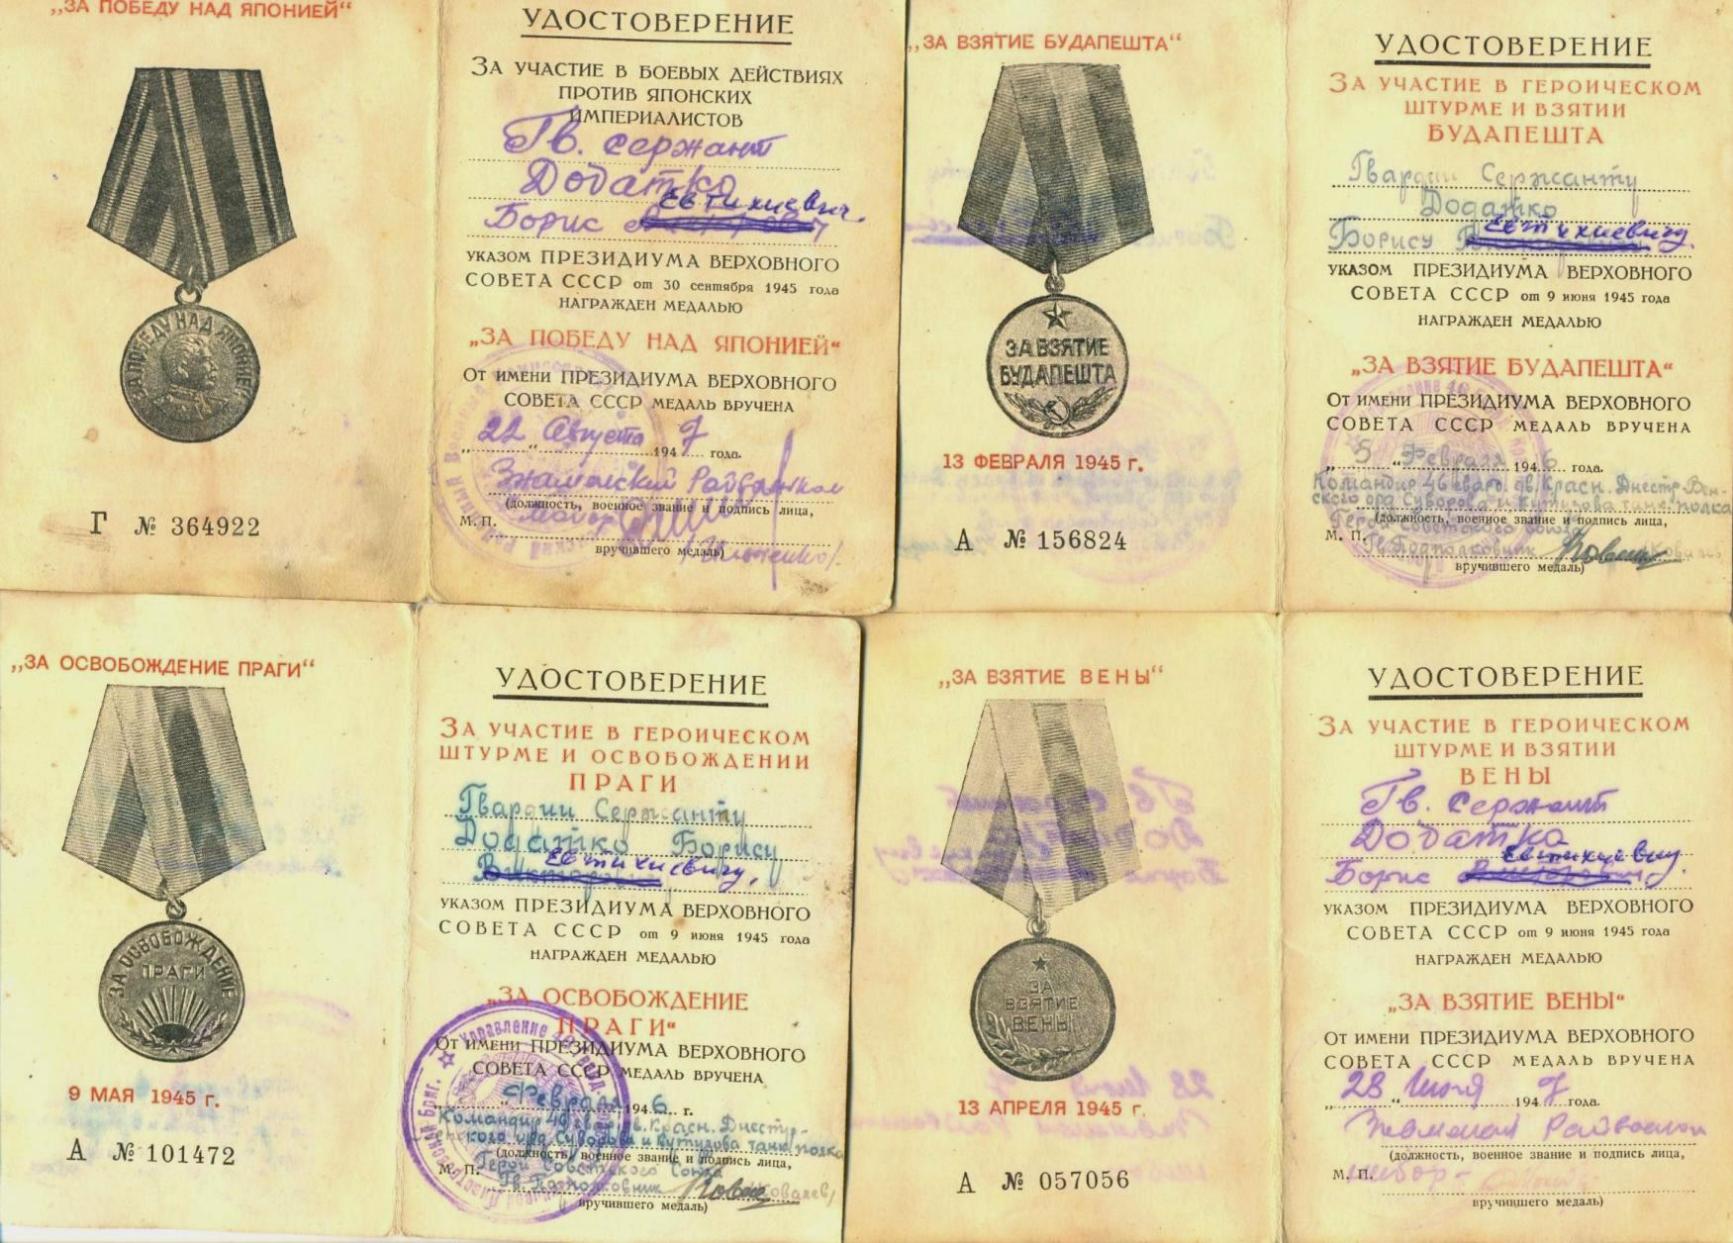 „ЗА ПОБЕДУ НАД ЯПОНИЕЙ“
ЗА ПОБЕДУ НАД ЯПОНИЕЙ
Г № 364922
УДОСТОВЕРЕНИЕ
ЗА УЧАСТИЕ В БОЕВЫХ ДЕЙСТВИЯХ
ПРОТИВ ЯПОНСКИХ
ИМПЕРИАЛИСТОВ
Гв. сержант
Додатко
Евтихиевич.
Борис
УКАЗОМ ПРЕЗИДИУМА ВЕРХОВНОГО
СОВЕТА СССР от 30 сентября 1945 года
НАГРАЖДЕН МЕДАЛЬЮ
„ЗА ПОБЕДУ НАД ЯПОНИЕЙ“
ОТ ИМЕНИ ПРЕЗИДИУМА ВЕРХОВНОГО
СОВЕТА СССР МЕДАЛЬ ВРУЧЕНА
„22“ Августа 1947 года.
(должность, военное звание и подпись лица,
М. П. майор
вручившего медаль)
„ЗА ВЗЯТИЕ БУДАПЕШТА“
ЗА ВЗЯТИЕ
БУДАПЕШТА
13 ФЕВРАЛЯ 1945 г.
А № 156824
УДОСТОВЕРЕНИЕ
ЗА УЧАСТИЕ В ГЕРОИЧЕСКОМ
ШТУРМЕ И ВЗЯТИИ
БУДАПЕШТА
Гвардии Сержанту
Додатко
Борису Евтихиевичу.
УКАЗОМ ПРЕЗИДИУМА ВЕРХОВНОГО
СОВЕТА СССР от 9 июня 1945 года
НАГРАЖДЕН МЕДАЛЬЮ
„ЗА ВЗЯТИЕ БУДАПЕШТА“
ОТ ИМЕНИ ПРЕЗИДИУМА ВЕРХОВНОГО
СОВЕТА СССР МЕДАЛЬ ВРУЧЕНА
„5“ Февраля 1946 года.
Командир 46 гвард. дв. Красн. Днестр-Вен-
ского орд Суворова и Кутузова танк. полка
(должность, военное звание и подпись лица,
Герой Советского Союза
М. П. Гв. Подполковник Ковалев
вручившего медаль)
„ЗА ОСВОБОЖДЕНИЕ ПРАГИ“
ЗА ОСВОБОЖДЕНИЕ
ПРАГИ
9 МАЯ 1945 г.
А № 101472
УДОСТОВЕРЕНИЕ
ЗА УЧАСТИЕ В ГЕРОИЧЕСКОМ
ШТУРМЕ И ОСВОБОЖДЕНИИ
ПРАГИ
Гвардии Сержанту
Додатко Борису
Евтихиевичу,
УКАЗОМ ПРЕЗИДИУМА ВЕРХОВНОГО
СОВЕТА СССР от 9 июня 1945 года
НАГРАЖДЕН МЕДАЛЬЮ
„ЗА ОСВОБОЖДЕНИЕ
ПРАГИ“
ОТ ИМЕНИ ПРЕЗИДИУМА ВЕРХОВНОГО
СОВЕТА СССР МЕДАЛЬ ВРУЧЕНА
Февраля 1946 г.
Командир 46 гвард. дв. Красн. Днестр-
ского орд Суворова и Кутузова танк. полка
(должность, военное звание и подпись лица,
М. П. Герой Советского Союза
Гв. Подполковник Ковалев
вручившего медаль)
„ЗА ВЗЯТИЕ ВЕНЫ“
ЗА
ВЗЯТИЕ
ВЕНЫ
13 АПРЕЛЯ 1945 г.
А № 057056
УДОСТОВЕРЕНИЕ
ЗА УЧАСТИЕ В ГЕРОИЧЕСКОМ
ШТУРМЕ И ВЗЯТИИ
ВЕНЫ
Гв. Сержант
Додатко
Евтихиевич.
Борис
УКАЗОМ ПРЕЗИДИУМА ВЕРХОВНОГО
СОВЕТА СССР от 9 июня 1945 года
НАГРАЖДЕН МЕДАЛЬЮ
„ЗА ВЗЯТИЕ ВЕНЫ“
ОТ ИМЕНИ ПРЕЗИДИУМА ВЕРХОВНОГО
СОВЕТА СССР МЕДАЛЬ ВРУЧЕНА
„28“ Июля 1947 года.
(должность, военное звание и подпись лица,
М. П.
вручившего медаль)